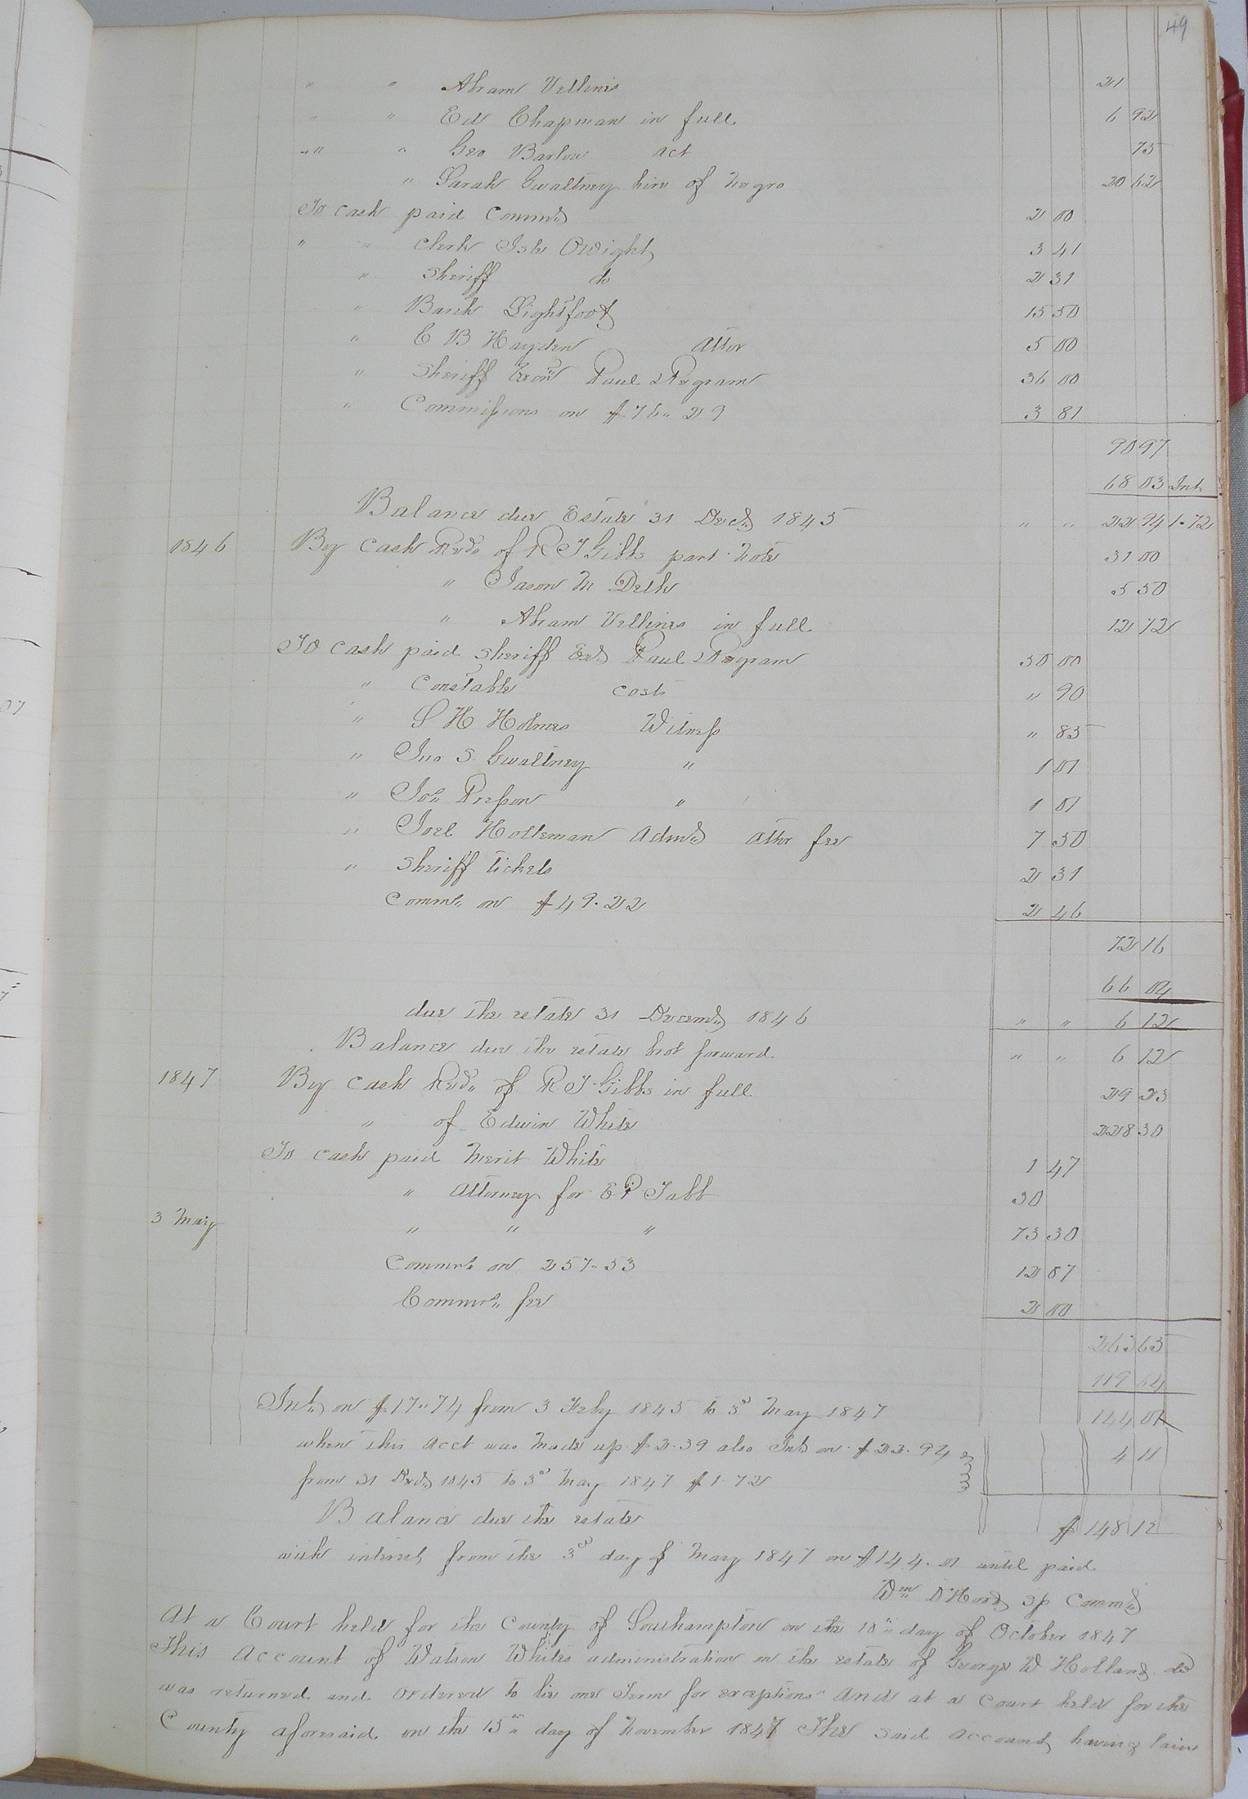 49
" " Abram Vellines 21
" " Ed Chapman in full 6 92
" " " Geo Barlow act 75
" Sarah Gwaltney hire of Negro 20 62
To cash paid Commr 2 00
" " Clerk Isle Owight 3 41
" Sheriff do 2 31
" Bartlet Lightfoot 15 50
" E B Hayden Attor 5 00
" Sheriff Exon Paul & Pegram 36 00
" Commissions on $76.29 3 81
90 97
68 03 Int
Balance due Estate 31 Decr 1845 " " 22 94 1.72
1846 By Cash Recd of R J Gibbs part Note 31 00
" Jason M Delk 5 50
" Abram Vellines in full 12 72
To cash paid Sheriff Exr Paul & Pegram 50 00
" Constable costs " 90
" S H Holmes Witness " 85
" Jno S Gwaltney " 1 01
" Jos Presson " 1 01
" Joel Holleman Admr Attor fee 7 50
" Sheriff tickets 2 31
Commrs on $49.22 2 46
72 16
66 04
due the estate 31 Decemr 1846 " " 6 12
Balance due the estate brot forward " " 6 12
1847 By Cash Recd of R J Gibbs in full 29 23
" of Edwin White 228 30
To cash paid Merit White 1 47
" Attorney for E P Tabb 30
3 May " " " 73 30
Comms on 257.53 12 87
Commrs fee 2 00
263 65
119 64
144 01
Int on $17.74 from 3 Feby 1845 to 3d May 1847
when this acct was made up $2.39 also Int on $22.94 4 11
from 31 Decr 1845 to 3d May 1847 $1.72
Balance due the estate $148 12
with interest from the 3d day of May 1847 on $144.01 until paid
Wm D Hood sp Commr
At a Court held for the County of Southampton on the 18th day of October 1847
This account of Watson Whites administration on the estate of George W Holland decd
was returned and ordered to lie one Term for exceptions And at a Court held for the
County aforesaid on the 15th day of November 1847 The said account having lain